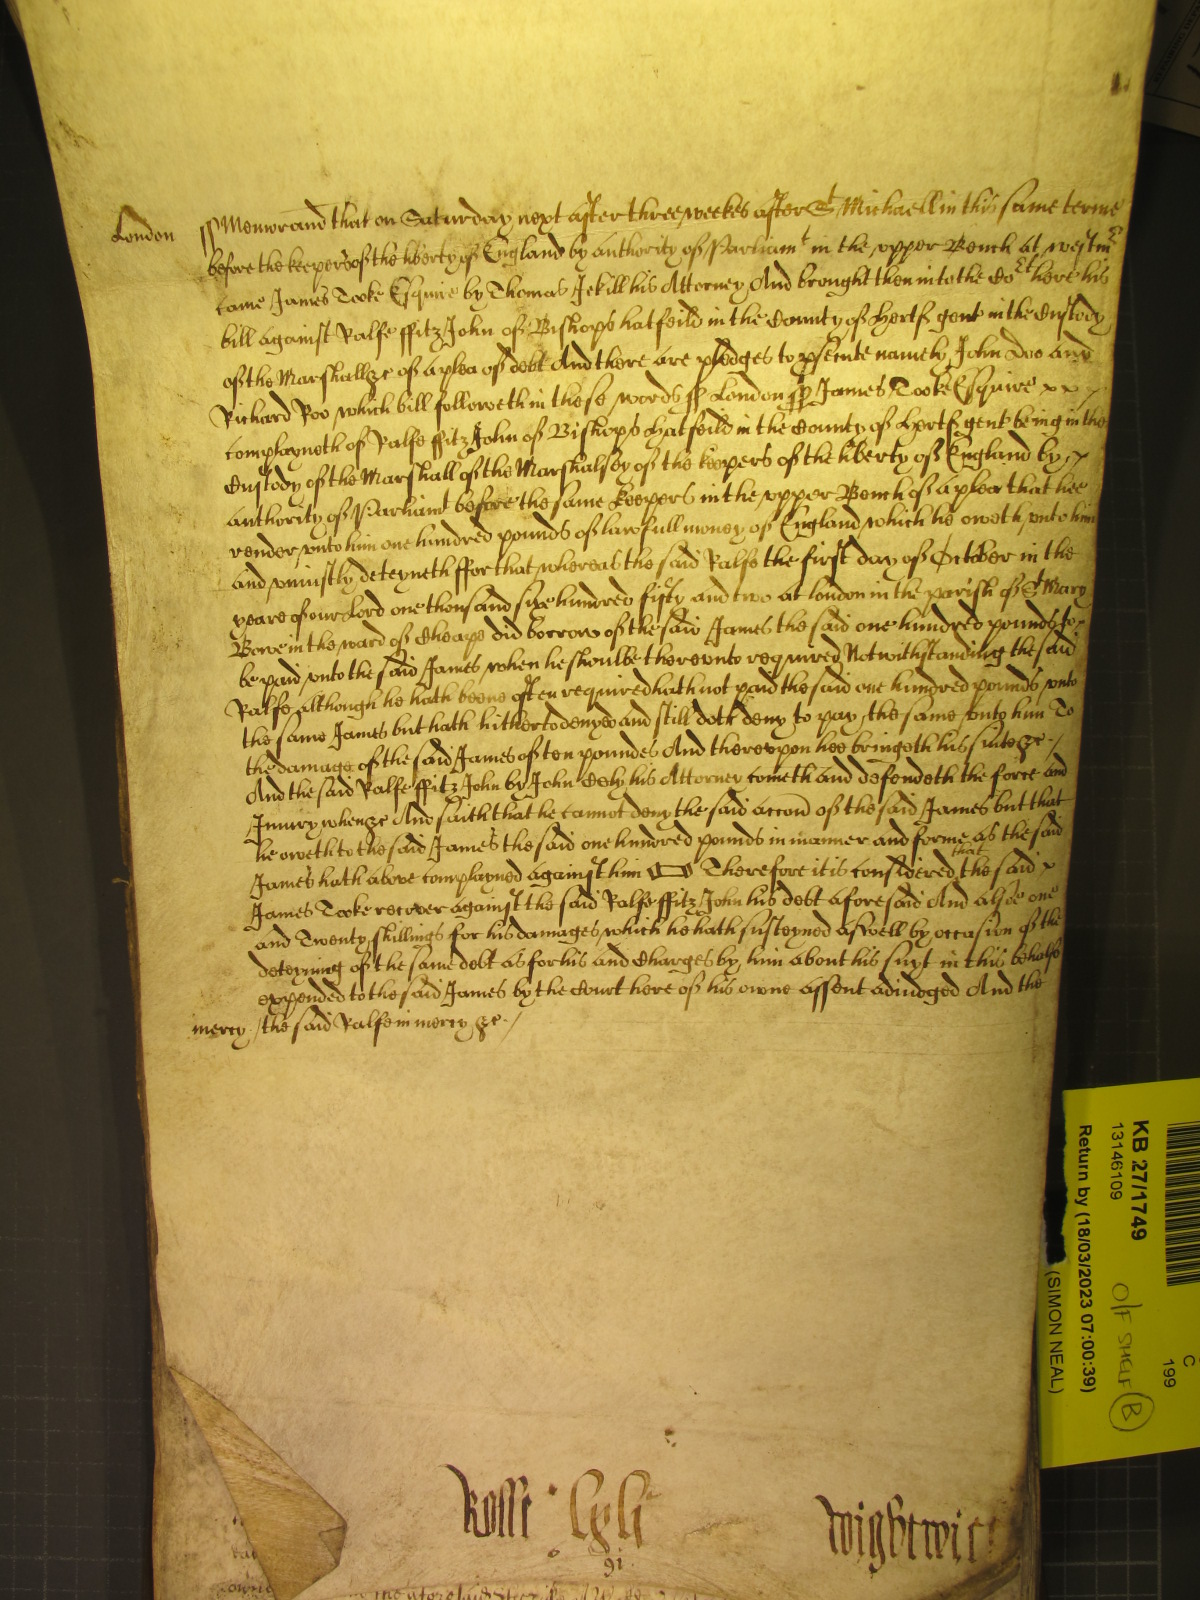 London ss Memorand that on Saturday next after three weekes after St Michaell in this same terme
before the keepers of the liberty of England by authority of Parliamt in the upper Bench at westmr
came James Tooke Esquire by Thomas Jekill his Attorney And brought then into the Cort here his
bill against Ralfe ffitz John of Bishops hatfeild in the County of Hertf gent in the Custody
of the Marshall &c of a plea of debt And there are pledges to psecute namely John Doo and
Richard Roo which bill followeth in these words ss London ss James Tooke Esquire x x x
complayneth of Ralfe ffitz John of Bishops Hatfeild in the County of Hertf gent being in the
Custody of the Marshall of the Marshalsey of the keepers of the liberty of England by
authority of Parliamt before the same keepers in the upper Bench of a plea that hee
render unto him one hundred pounds of lawfull money of England which he oweth unto him
and uniustly deteyneth ffor that whereas the said Ralfe the first day of October in the
yeare of our Lord one thousand sixe hundred fifty and two at london in the parish of St Mary
Bowe in the ward of Cheape did borrow of the said James the said one hundred pounds to
be paid unto the said James when he shoulbe thereunto required Notwithstanding the said
Ralfe although he hath beene often required hath not paid the said one hundred pounds unto
the same James but hath hitherto denyed and still doth deny to pay the same unto him To
the damage of the said James of ten poundes And thereupon hee bringeth his suite &c
And the said Ralfe ffitz John by John Eely his Attorney cometh and defendeth the force and
Iniury when &c And saith that he cannot deny the said accon of the said James but that
he oweth to the said James the said one hundred pounds in manner and forme as the said
James hath above complayned against him Therefore it is considered that the said x
James Tooke recover against the said Ralfe ffitz John his debt aforesaid And alsoe one
and Twenty shillings for his damages which he hath susteyned aswell by occasion of the
deteyning of the same debt as for his and Charges by him about his suyt in this behalfe
expended to the said James by the Court here of his owne assent adiudged And the
mercy the said Ralfe in mercy &c
Rolle
91
Wightwick
KB 27/1749
13146109
Return by (18/03/2023 07:00:39)
(SIMON NEAL)
O/F SHELF B
C
199